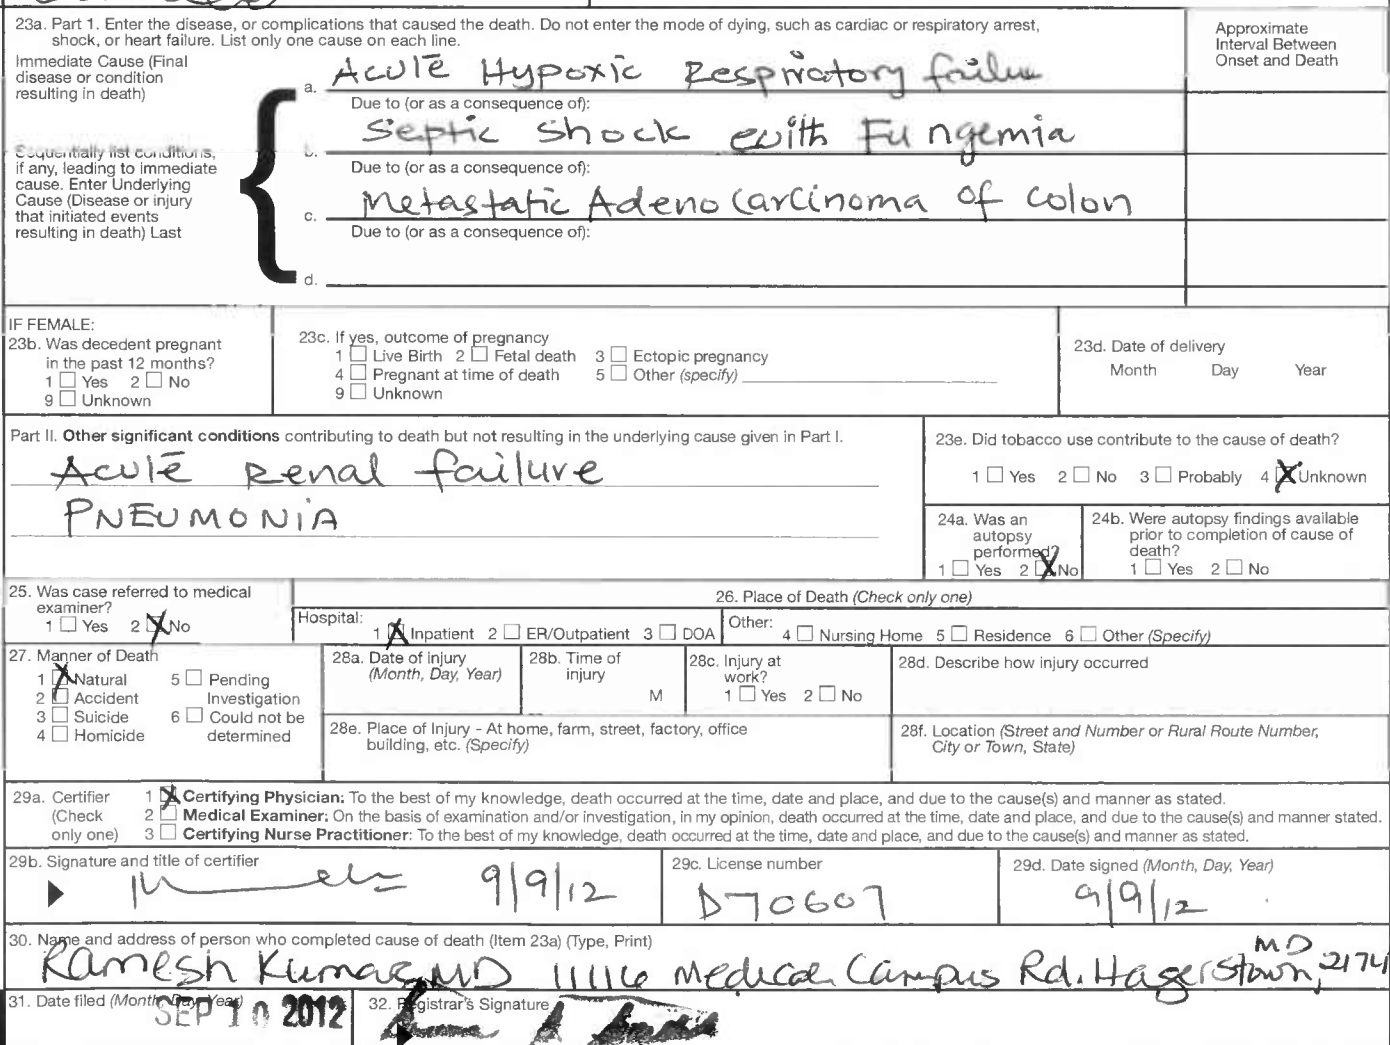 23a. Part 1. Enter the disease, or complications that caused the death. Do not enter the mode of dying, such as cardiac or respiratory arrest,
shock, or heart failure. List only one cause on each line.
Approximate
Interval Between
Onset and Death
Immediate Cause (Final
disease or condition
resulting in death)
a. Acute Hypoxic Respiratory failure
Due to (or as a consequence of):
Sequentially list conditions,
if any, leading to immediate
cause. Enter Underlying
Cause (Disease or injury
that initiated events
resulting in death) Last
b. Septic Shock with Fungemia
Due to (or as a consequence of):
c. Metastatic Adenocarcinoma of Colon
Due to (or as a consequence of):
d.
IF FEMALE:
23b. Was decedent pregnant
in the past 12 months?
1 Yes 2 No
9 Unknown
23c. If yes, outcome of pregnancy
1 Live Birth 2 Fetal death 3 Ectopic pregnancy
4 Pregnant at time of death 5 Other (specify)
9 Unknown
23d. Date of delivery
Month Day Year
Part II. Other significant conditions contributing to death but not resulting in the underlying cause given in Part I.
Acute Renal failure
PNEUMONIA
23e. Did tobacco use contribute to the cause of death?
1 Yes 2 No 3 Probably 4 X Unknown
24a. Was an
autopsy
performed?
1 Yes 2 X No
24b. Were autopsy findings available
prior to completion of cause of
death?
1 Yes 2 No
25. Was case referred to medical
examiner?
1 Yes 2 X No
26. Place of Death (Check only one)
Hospital:
1 X Inpatient 2 ER/Outpatient 3 DOA
Other:
4 Nursing Home 5 Residence 6 Other (Specify)
27. Manner of Death
1 X Natural 5 Pending
2 Accident Investigation
3 Suicide 6 Could not be
4 Homicide determined
28a. Date of injury
(Month, Day, Year)
28b. Time of
injury
M
28c. Injury at
work?
1 Yes 2 No
28d. Describe how injury occurred
28e. Place of Injury - At home, farm, street, factory, office
building, etc. (Specify)
28f. Location (Street and Number or Rural Route Number,
City or Town, State)
29a. Certifier
(Check
only one)
1 X Certifying Physician: To the best of my knowledge, death occurred at the time, date and place, and due to the cause(s) and manner as stated.
2 Medical Examiner: On the basis of examination and/or investigation, in my opinion, death occurred at the time, date and place, and due to the cause(s) and manner stated.
3 Certifying Nurse Practitioner: To the best of my knowledge, death occurred at the time, date and place, and due to the cause(s) and manner as stated.
29b. Signature and title of certifier
9/9/12
29c. License number
D70607
29d. Date signed (Month, Day, Year)
9/9/12
30. Name and address of person who completed cause of death (Item 23a) (Type, Print)
Ramesh Kumar, MD 11116 Medical Campus Rd. Hagerstown, MD 2174
31. Date filed (Month, Day, Year)
SEP 10 2012
32. Registrar's Signature